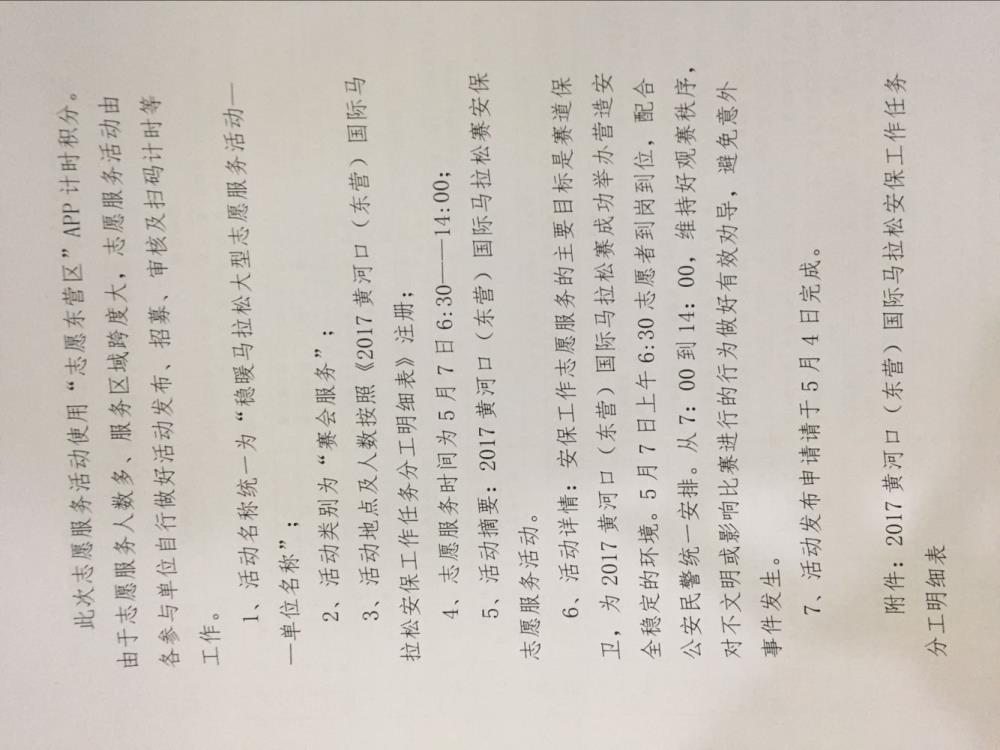 此次志愿服务活动使用“志愿东营区”APP 计时积分。
由于志愿服务人数多、服务区域跨度大，志愿服务活动由
各参与单位自行做好活动发布、招募、审核及扫码计时等
工作。
1、活动名称统一为“稳暖马拉松大型志愿服务活动—
—单位名称”；
2、活动类别为“赛会服务”；
3、活动地点及人数按照《2017 黄河口（东营）国际马
拉松安保工作任务分工明细表》注册；
4、志愿服务时间为 5 月 7 日 6:30——14:00；
5、活动摘要：2017 黄河口（东营）国际马拉松赛安保
志愿服务活动。
6、活动详情：安保工作志愿服务的主要目标是赛道保
卫，为 2017 黄河口（东营）国际马拉松赛成功举办营造安
全稳定的环境。5 月 7 日上午 6:30 志愿者到岗到位，配合
公安民警统一安排。从 7：00 到 14：00，维持好观赛秩序，
对不文明或影响比赛进行的行为做好有效劝导，避免意外
事件发生。
7、活动发布申请请于 5 月 4 日完成。
附件：2017 黄河口（东营）国际马拉松安保工作任务
分工明细表